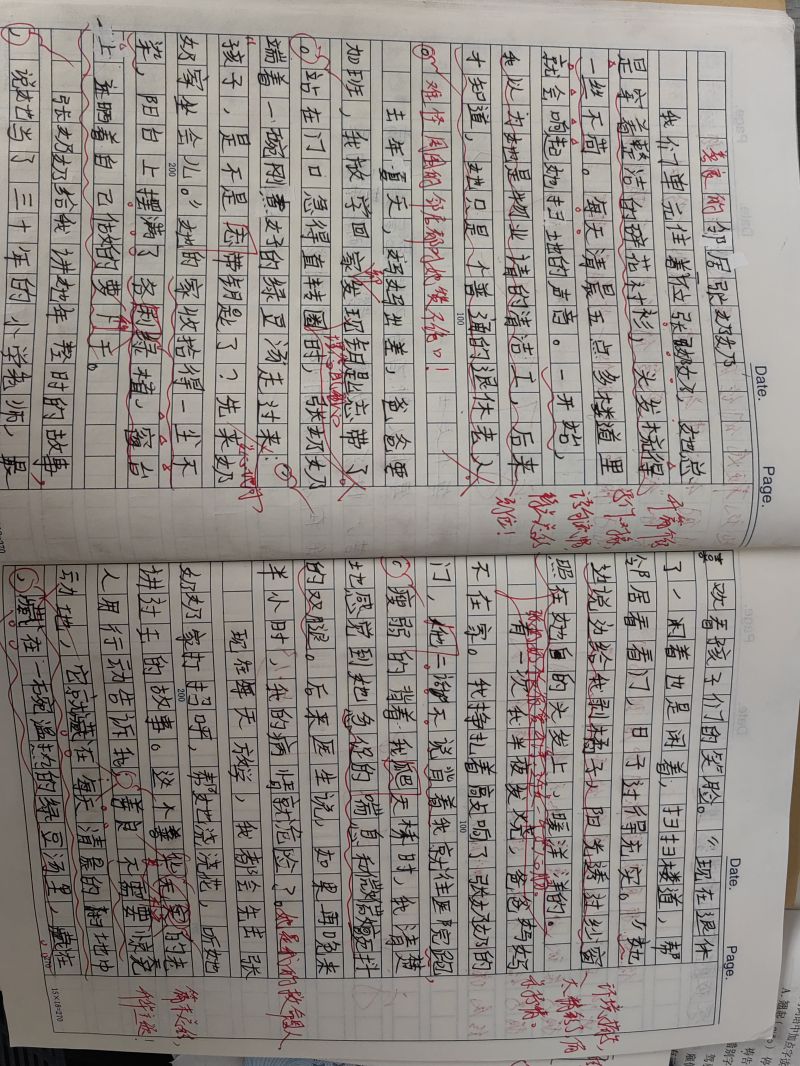 善良的邻居张奶奶
我们单元住着位张奶奶，她总
是穿着整洁的碎花衬衫，头发梳得
一丝不苟。每天清晨五点多楼道里
就会响起她扫地的声音。一开始，
我以为她是物业请的清洁工，后来
才知道，她只是个普通的退休老人。
难怪周围的邻居都对她赞不绝口！
去年夏天，妈妈出差，爸爸要
加班，我放学回家发现钥匙忘带了
。站在门口急得直转圈时，张奶奶
端着一碗刚煮好的绿豆汤走过来：
“孩子，是不是忘带钥匙了？先来奶
奶家坐会儿。”她的家收拾得一尘不
染，阳台上摆满了各制绿植，窗台
上 晒着自己做的萝卜干。
张奶奶给我讲她年轻时的故事
，说她当了三十年的小学教师，最
喜欢看孩子们的笑脸。“现在退休
了，闲着也是闲着，扫扫楼道，帮
邻居看看门，日子过得充实。”她
边说边给我剥橘子，阳光透过纱窗
照在她的头发上，暖洋洋的。
有一次我半夜发烧，爸爸妈妈
不在家。我挣扎着敲响了张奶奶的
门，她二话不说背着我就往医院跑，
瘦弱的背着我爬天桥时，我清楚
地感觉到她急促的喘息和微微颤抖
的双腿。后来医生说，如果再晚来
半小时，我的病情就危险了。她是我的救命恩人
现在每天放学，我都会先去张
奶奶家打招呼，帮她浇浇花，听她
讲过去的故事。这个善良的老
人用行动告诉我，善良不需要惊天
动地，它就藏在每天清晨的扫地声
，藏在一碗温热的绿豆汤里，藏在
开篇的
Date.
Page.
Date.
Page.
100
200
100
200
15×18=270